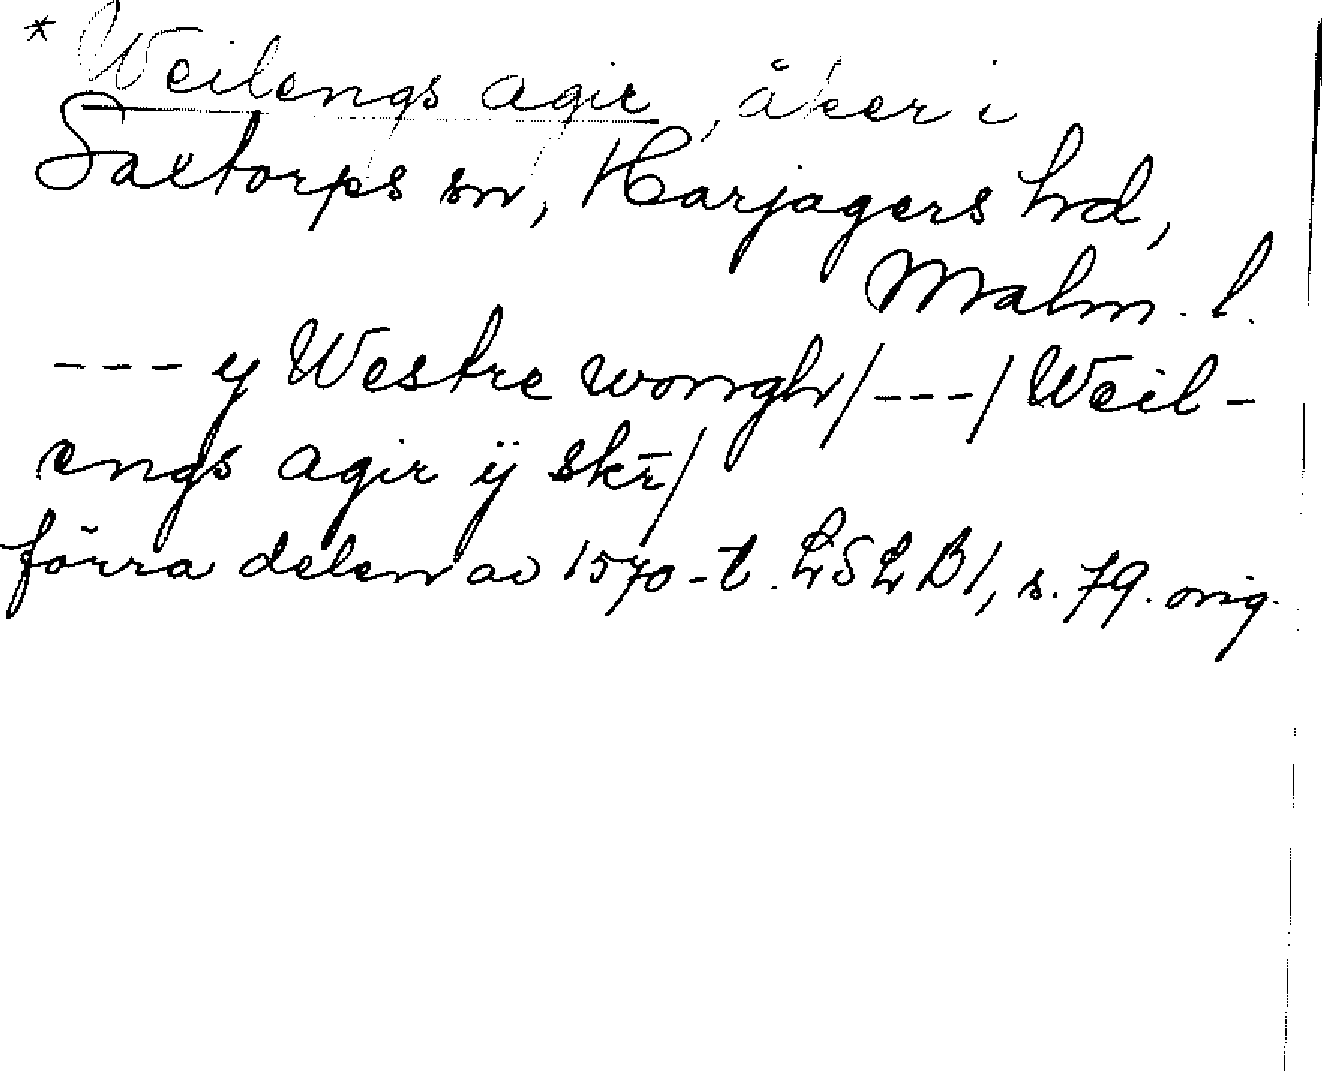 * Weilengs agir, åker i
Saxtorps sn, Harjagers hd,
Malm. l.
--- y Westre wongh/---/Weil-
engs agir ÿ skr̄/
förra delen av 1570-t. LSLB1, s. 79. orig.